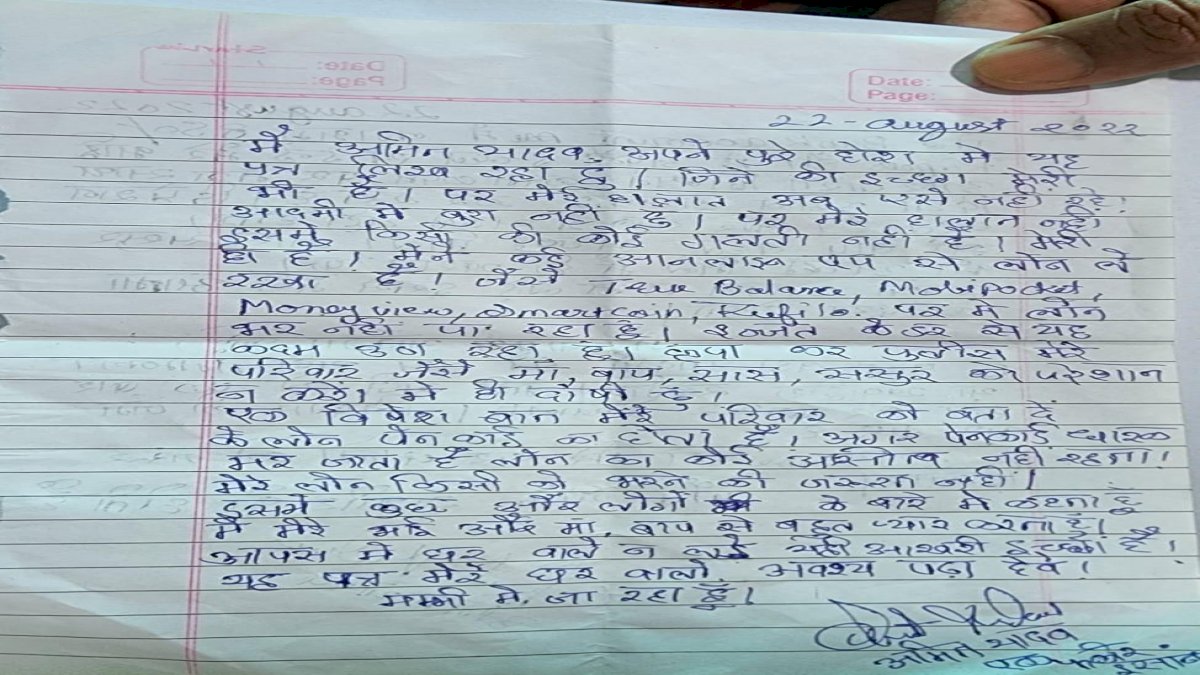 Date:
Page:
22-august 2022
मैं अमित यादव, अपने पुरे होश मे यह
पत्र लिख रहा हु। जिने की इच्छा मेरी
भी है। पर मेरे हालात अब एसे नही रहे।
आदमी मे बुरा नही हु। पर मेरे हालात नही।
इसमे किसी की कोई गलती नही है। मेरी
ही है। मैंने कई आनलाइन एप से लोन ले
रखा है। जैसे True Balance, Mobipocket,
Moneyview, Smartcoin, Rufilo. पर मे लोन
भर नही पा रहा हु। इज्जत के डर से यह
कदम उठा रहा हु। कृपा कर पुलीस मेरे
परिवार जैसे माँ, बाप, सास, ससुर को परेशान
न करे। मे ही दोषी हु।
एक विषेश बात मेरे परिवार को बता दे
के लोन पेनकार्ड का होता है। अगर पेनकार्ड धारक
मर जाता है लोन का कोई अस्तीत्व नही रहता।
मेरे लोन किसी को भरने की जरुरत नही।
इसमे कुछ और लोगो के बारे मे कहना हु
मै मेरे भाई और मा, बाप से बहुत प्यार करता हु।
आपस मे घर वाले न लडे यही आखरी इच्छा है।
यह पत्र मेरे घर वालो, अवश्य पढ़ा देवे।
मम्मी मे जा रहा हूँ।
अमित यादव
इंसान